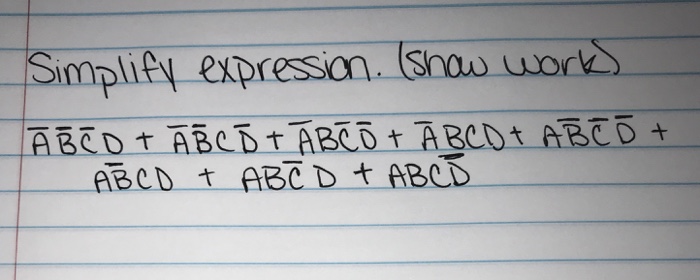 Simplify expression. (show work)
A̅B̅C̅D + A̅B̅CD̅ + A̅BC̅D̅ + A̅BCD + AB̅C̅D̅ +
AB̅CD + ABC̅D + ABCD̅